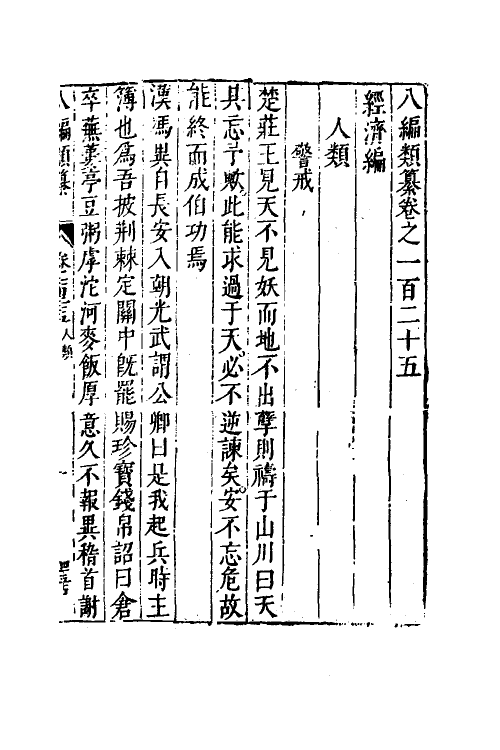 八編類纂卷之一百二十五
經濟編
人類
警戒
楚莊王見天不見妖而地不出孽則禱于山川曰天
其忘予歟此能求過于天必不逆諫矣安不忘危故
能終而成伯功焉
漢馮異自長安入朝光武謂公卿曰是我起兵時主
簿也爲吾披荆棘定關中旣罷賜珍寶錢帛詔曰倉
卒蕪蔞亭豆粥虖沱河麥飯厚意久不報異稽首謝
八編類纂
人類